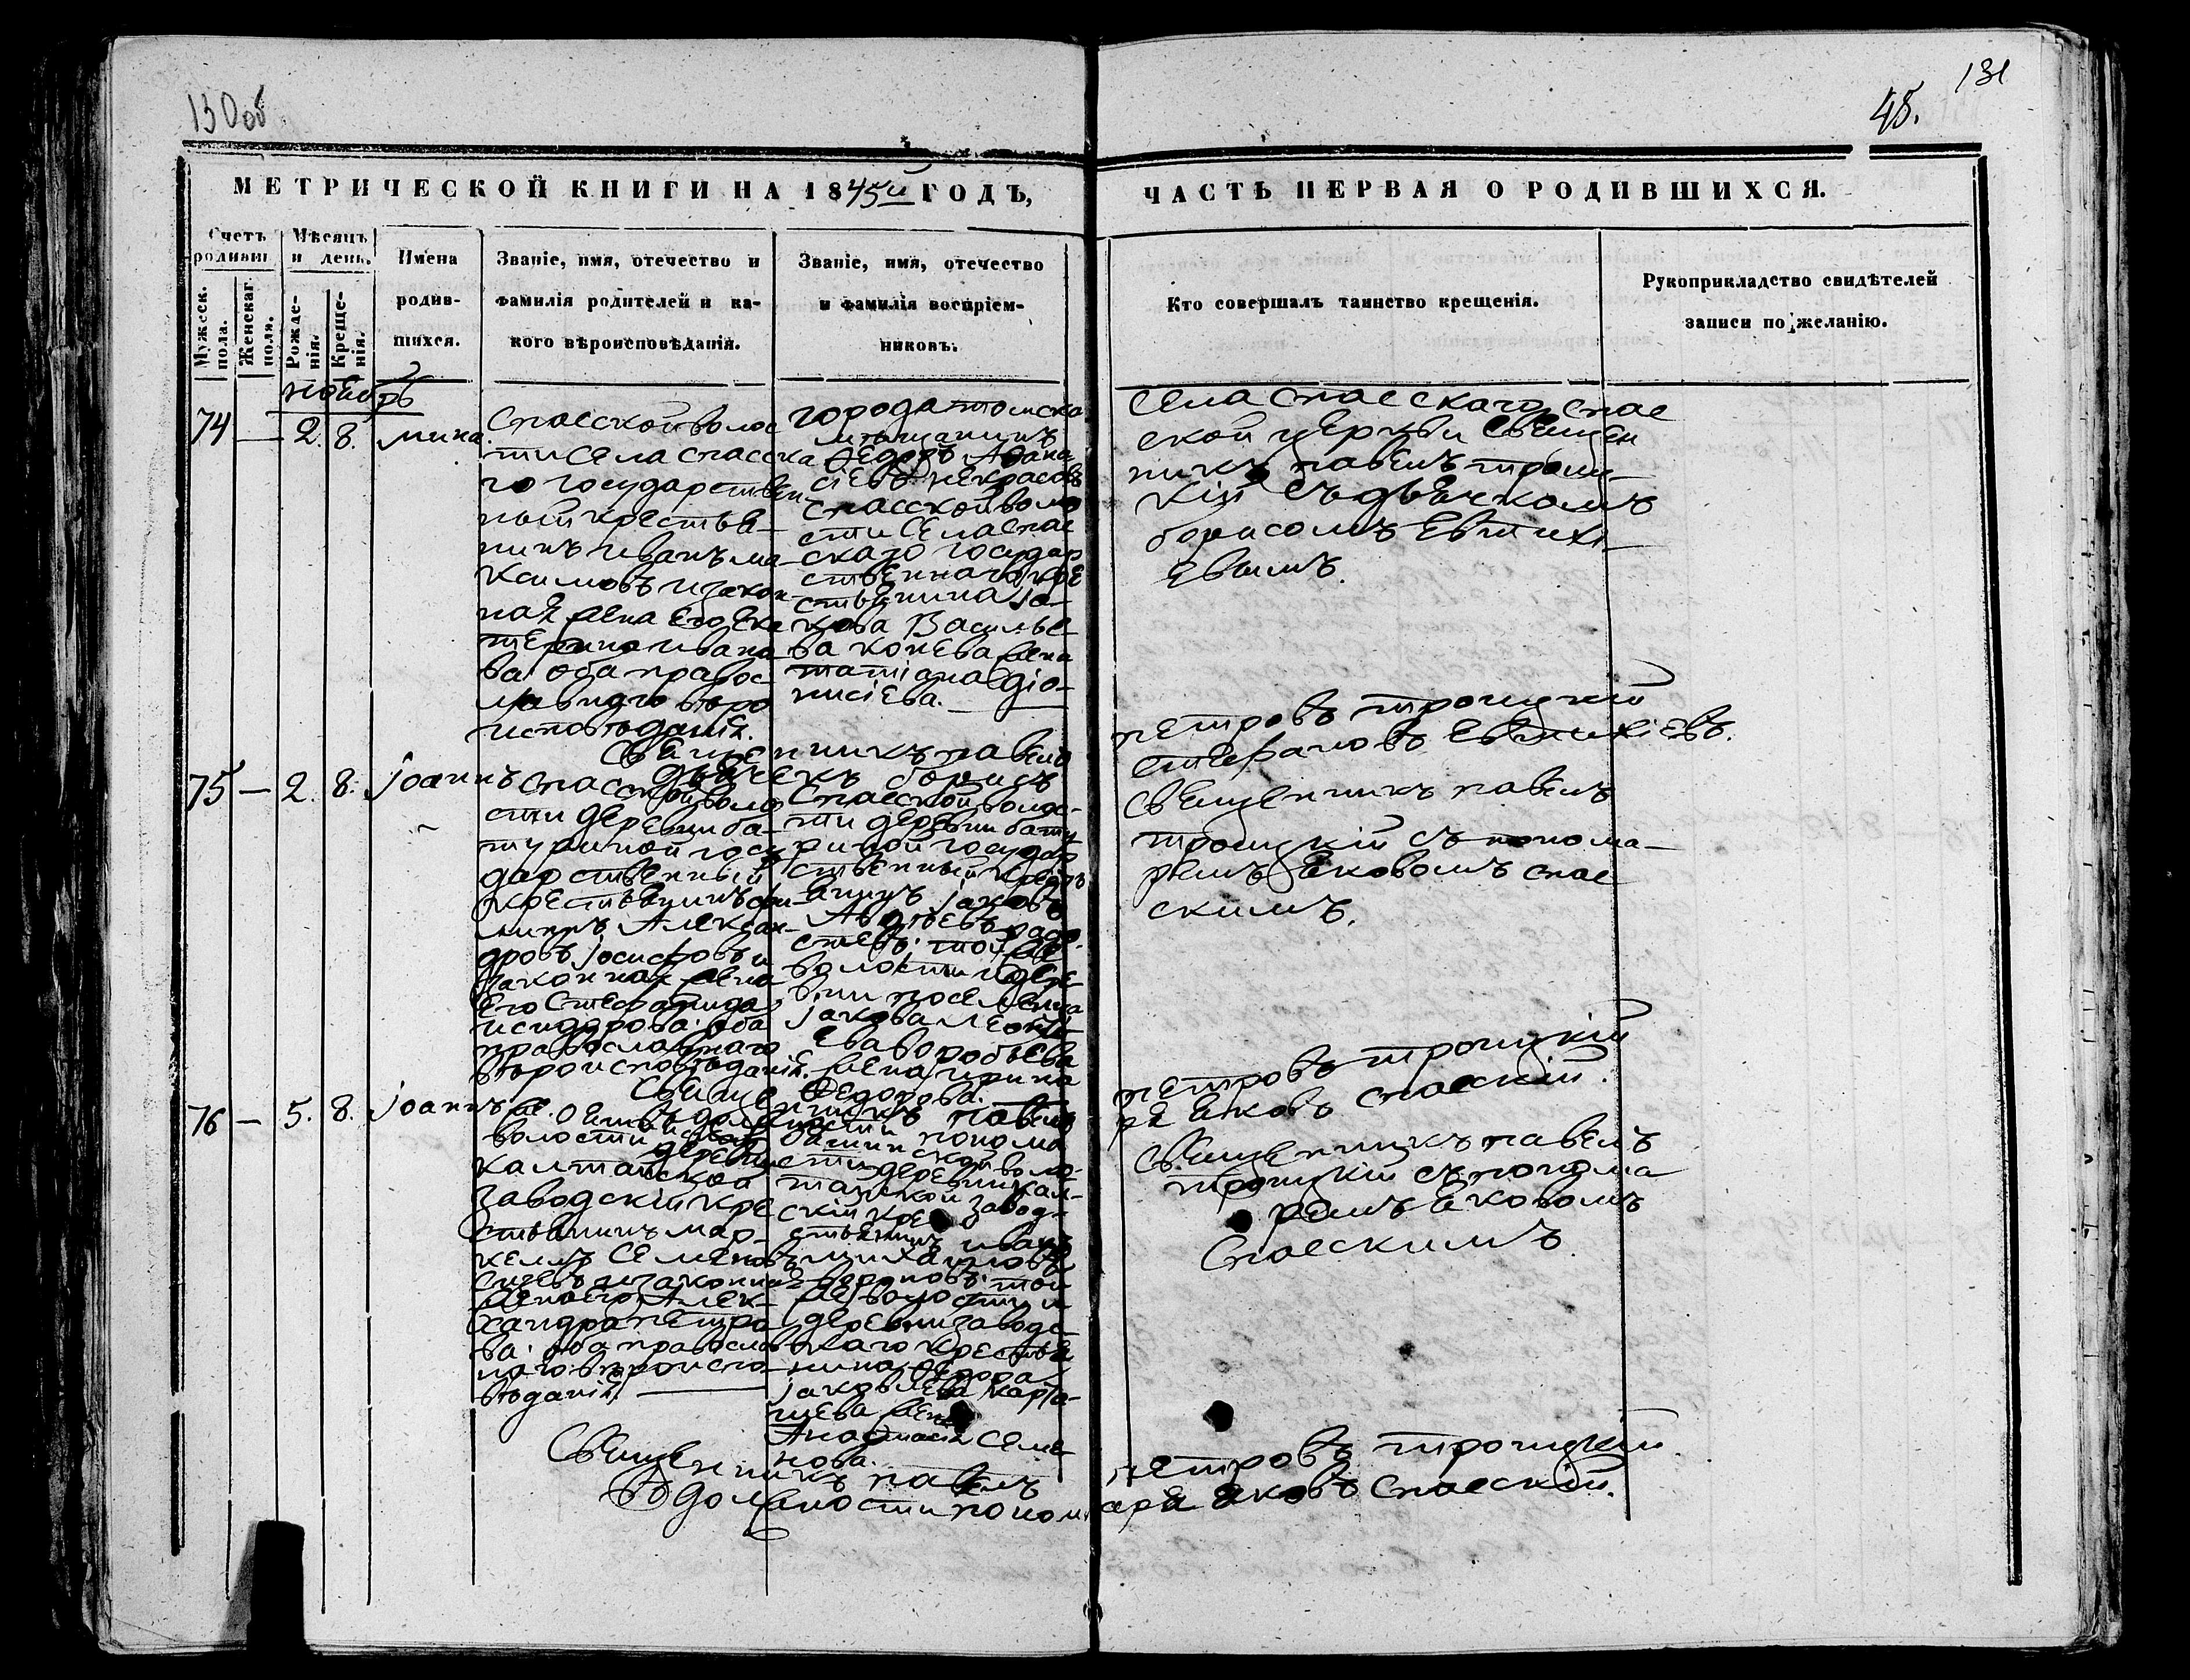 130об
131
48.
МЕТРИЧЕСКОЙ КНИГИ НА 1845й ГОДЪ,
ЧАСТЬ ПЕРВАЯ О РОДИВШИХСЯ.
Счетъ родивш.
Мужеск. пола.
Женскаг. пола.
Мѣсяцъ и день.
Рожде-
нія.
Креще-
нія.
Имена
родив-
шихся.
Званіе, имя, отечество и
фамилія родителей и ка-
кого вѣроисповѣданія.
Званіе, имя, отечество
и фамилія воспріем-
никовъ.
Кто совершалъ таинство крещенія.
Рукоприкладство свидѣтелей
записи по желанію.
ноябрь
74 — 2. 8. мина.
Спасской волос
ти села спасска
го государствен-
ный крестья-
нинъ иванъ ма-
ксимовъ и закон-
ная жена его Ека
терина ивано
ва: оба правос-
лавнаго вѣро
исповѣданія.
города томска
мѣщанинъ
Ѳедоръ Афана
сіевъ некрасовъ
спасской воло
сти села спас
скаго государ
ственнаго кре
стьянина Іа-
кова Василье
ва конева жена
татіана діо-
нисіева.
села спасскаго спас
ской церкви священ
никъ павелъ троиц-
кій съ дьячкомъ
борисомъ Евтихі-
евымъ.
Священникъ павелъ петровъ троицкій
дьячекъ борисъ стефановъ Евтихіевъ.
75 — 2. 8. Іоаннъ
спасской воло
сти деревни ба-
туриной госу
дарственный
крестьянинъ фи-
липпъ Алексан-
дровъ Іосифовъ и
законная жена
его Стефанида
исидорова: оба
православнаго
вѣроисповѣданія.
Спасской волос-
ти деревни бату
риной государ
ственный крестъ
янинъ Іаковъ
Авдѣевъ
той же
волости и дере
вни поселенца
Іакова Леонть
ева воробьева
жена ирина
Ѳедорова.
Священникъ павелъ
троицкій съ понома-
ремъ Яковомъ спас
скимъ.
Священникъ павелъ петровъ троицкій
въ должности понома ря Яковъ спасскій.
76 — 5. 8. Іоаннъ
волости
деревни
калтайской
заводскій кре
стьянинъ мар-
келъ Семеновъ
и законная
жена его Алек-
сандра петро
ва: оба правосла
наго вѣроиспо
вѣданія.
ской воло-
сти деревни кал-
тайской завод-
скій кре
стьянинъ иванъ
михаиловъ
вороновъ: той
же волости и
деревни заводс
каго крестья
нина Ѳедора
Іаковлева
жена
Анастасія Семе
нова.
Священникъ павелъ
троицкій съ понома
ремъ Яковомъ
Спасскимъ.
Священникъ павелъ петровъ троицкій.
въ должности пономаря Яковъ Спасскій.